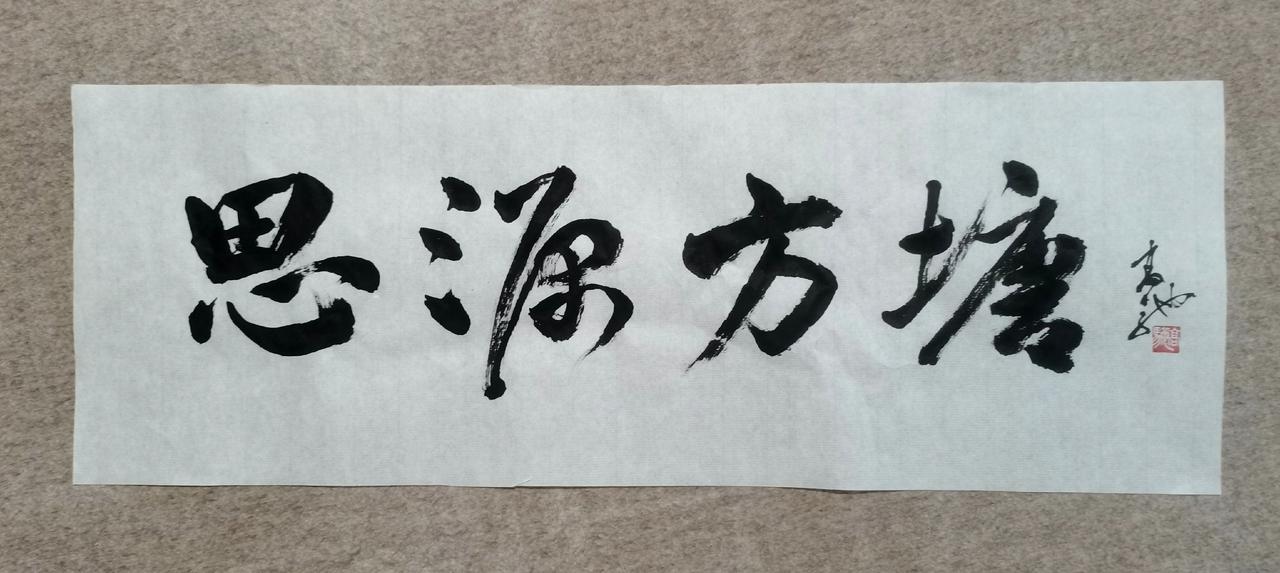 思源方塘